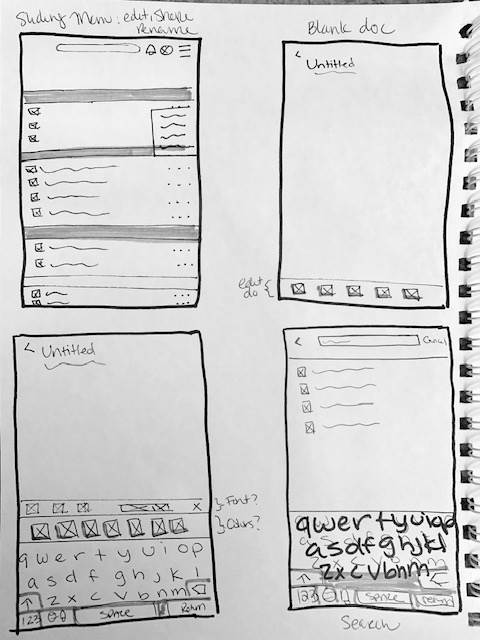 Sliding Menu: edit, Share
rename
Blank doc
< Untitled
edit
do
< Untitled
Font?
X
Colors?
q w e r t y u i o p
a s d f g h j k l
z x c v b n m
123
SPACE
Return
<
Cancel
qwertyuiop
asdfghjkl
zxcvbnm
123
SPACE
Search